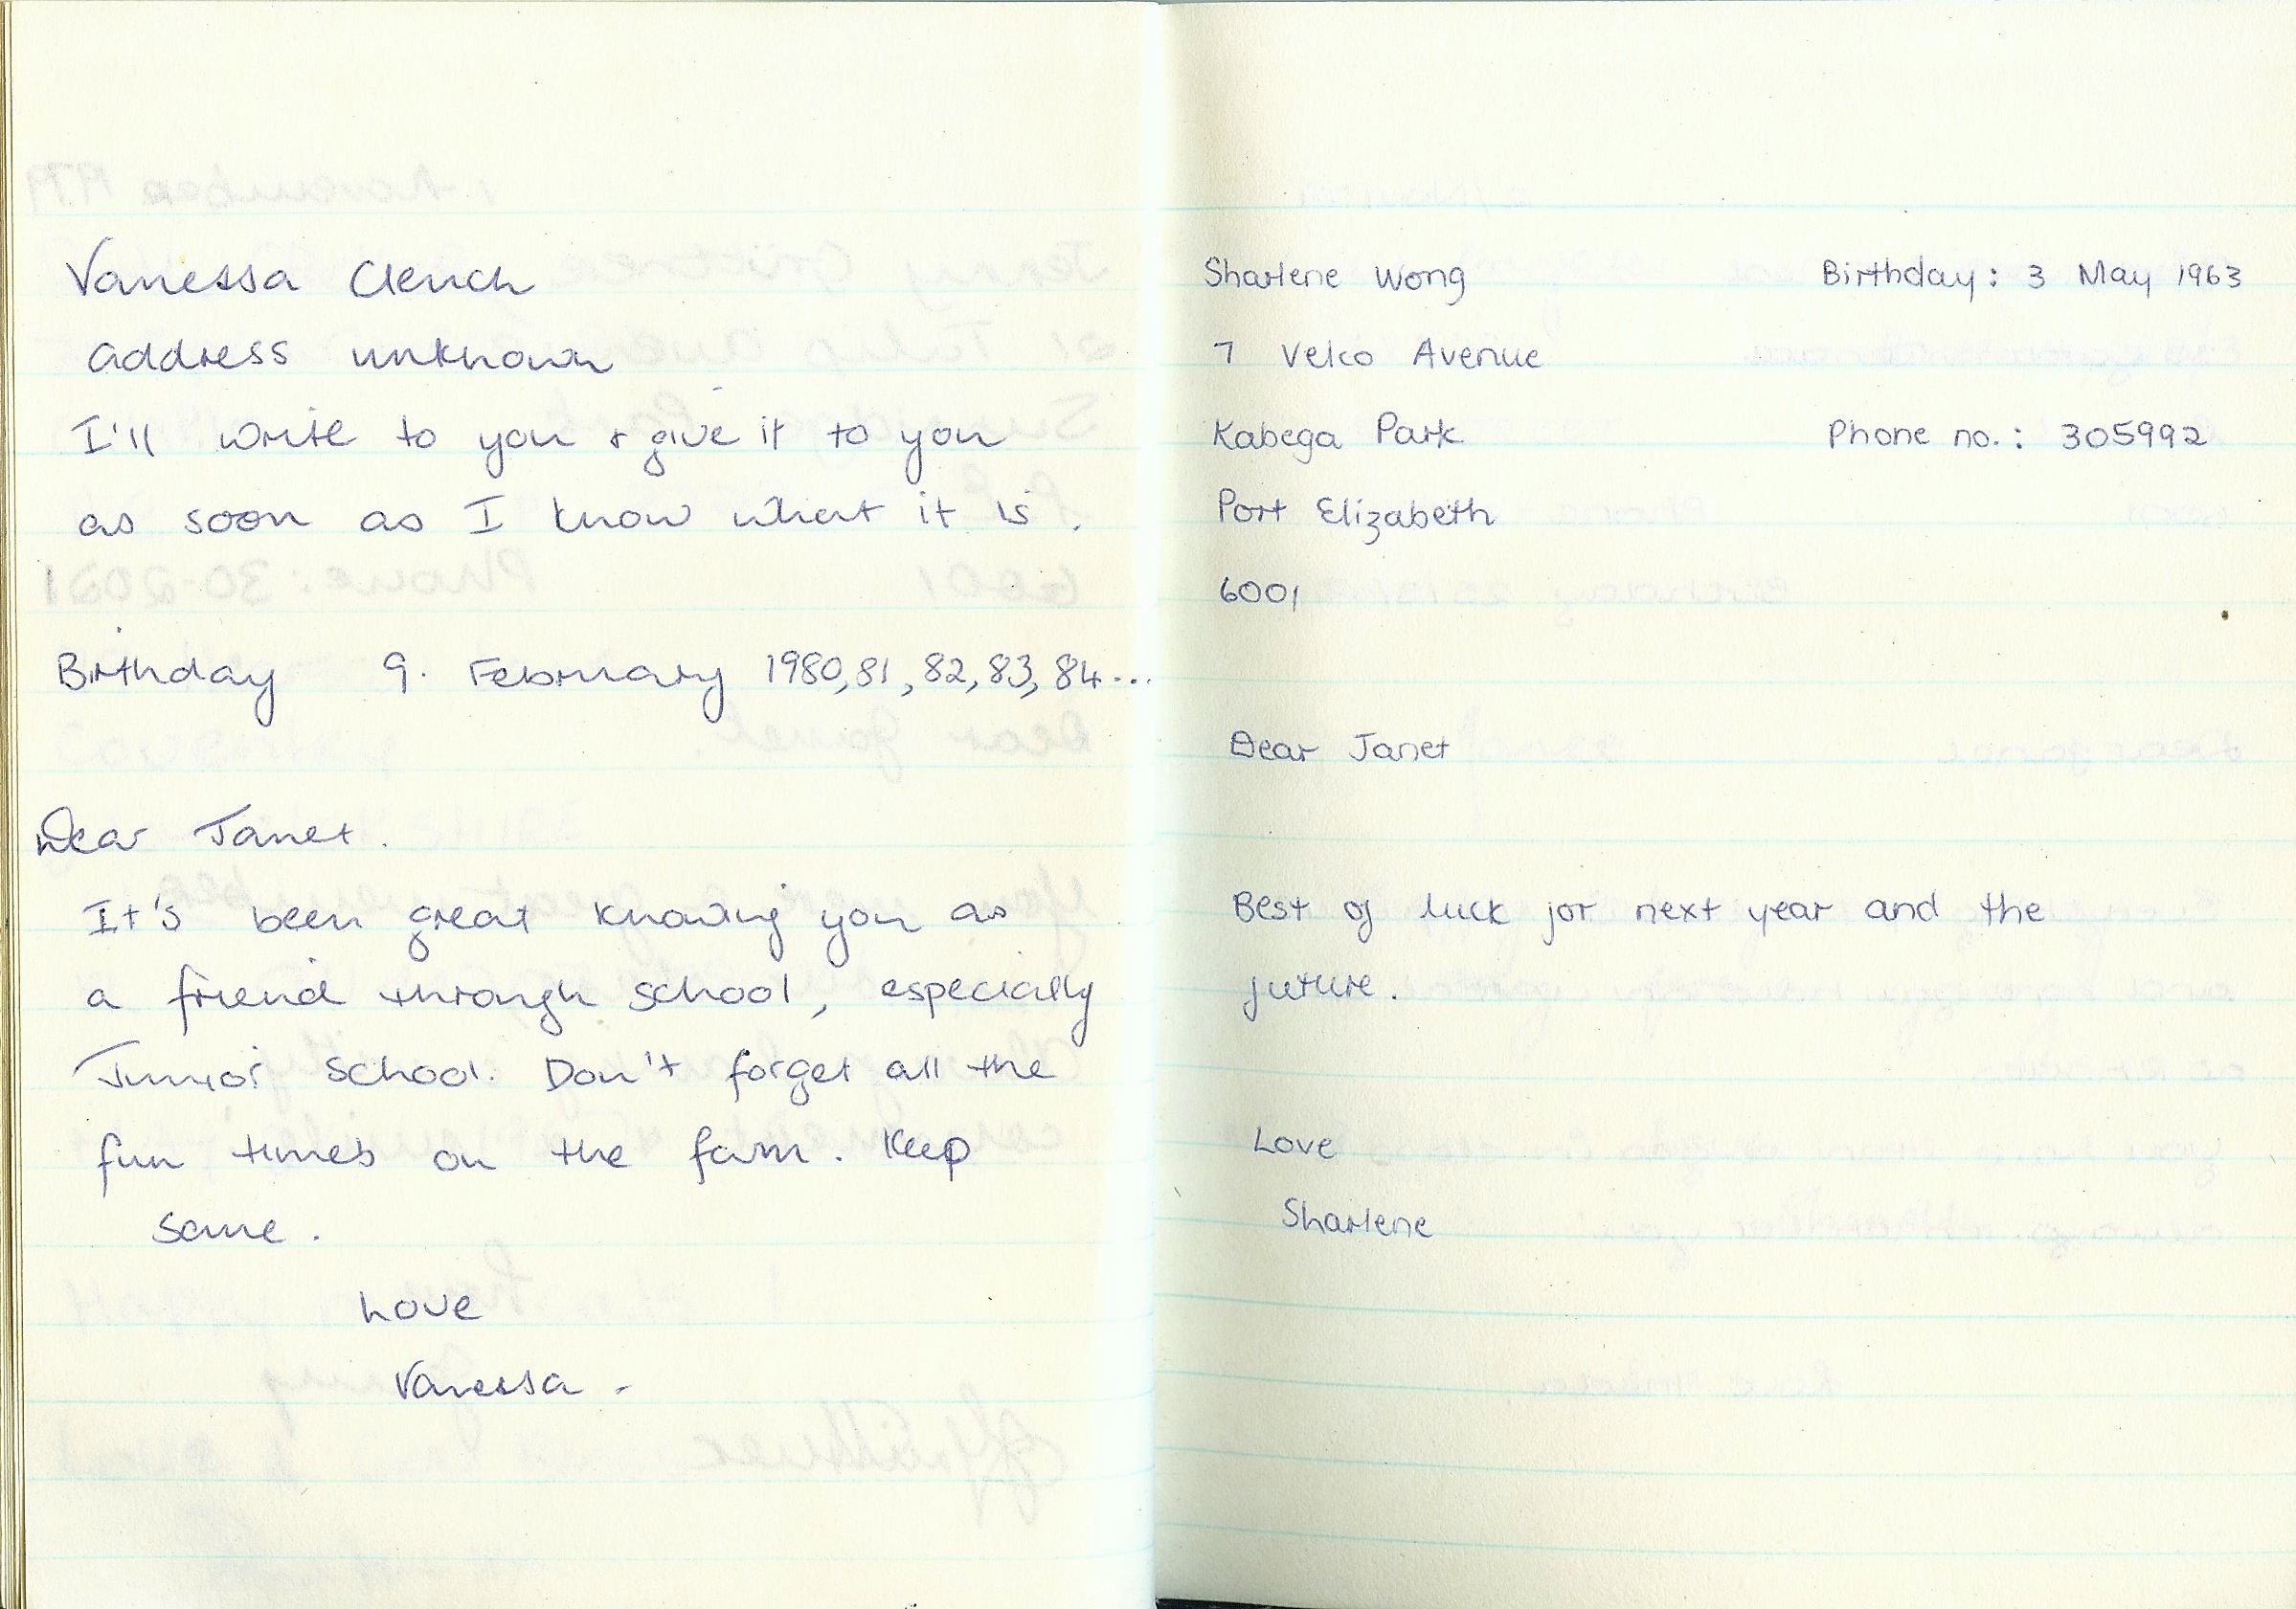 Vanessa Clench
address unknown
I'll write to you & give it to you
as soon as I know what it is.
Birthday 9. February 1980, 81, 82, 83, 84...
Dear Janet.
It's been great knowing you as
a friend through school, especially
Junior School. Don't forget all the
fun times on the farm. Keep
same.
Love
Vanessa -
Sharlene Wong Birthday: 3 May 1963
7 Velco Avenue
Kabega Park Phone no.: 305992
Port Elizabeth
6001
Dear Janet
Best of luck for next year and the
future.
Love
Sharlene